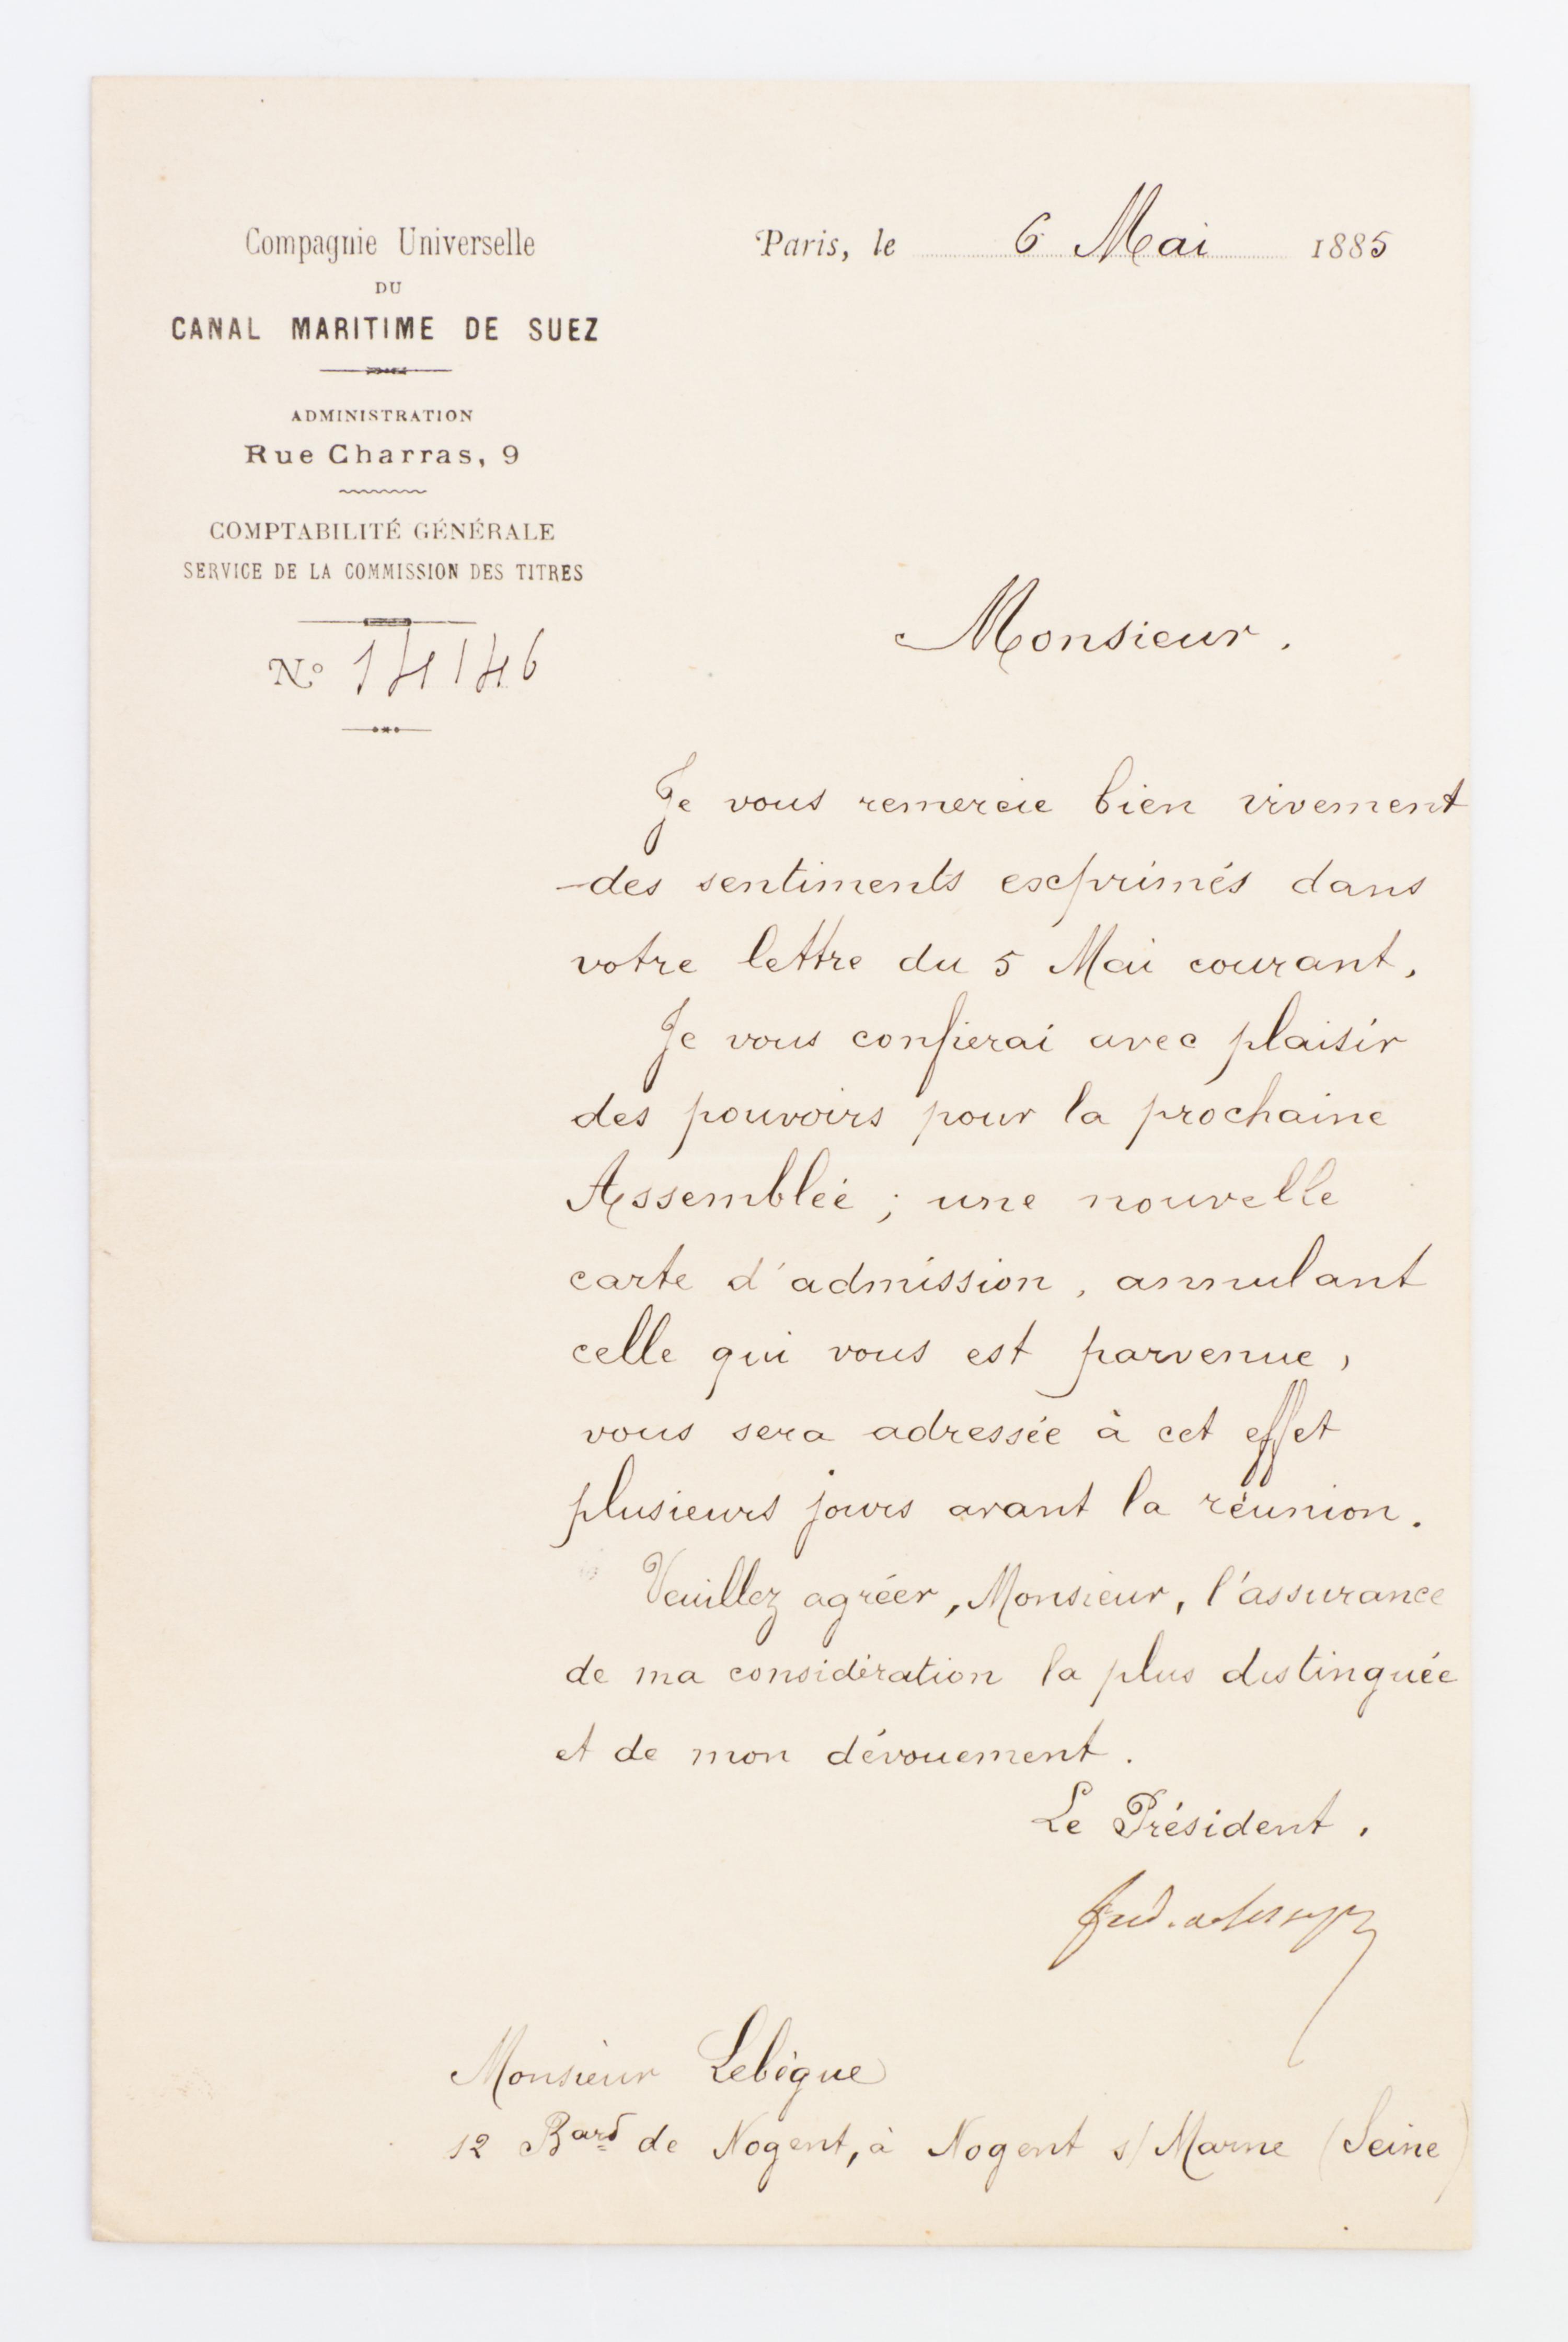 Compagnie Universelle
DU
CANAL MARITIME DE SUEZ
ADMINISTRATION
Rue Charras, 9
COMPTABILITÉ GÉNÉRALE
SERVICE DE LA COMMISSION DES TITRES
N° 14146
Paris, le 6 Mai 1885
Monsieur.
Je vous remercie bien vivement
des sentiments exprimés dans
votre lettre du 5 Mai courant.
Je vous confierai avec plaisir
des pouvoirs pour la prochaine
Assemblée ; une nouvelle
carte d'admission, annulant
celle qui vous est parvenue,
vous sera adressée à cet effet
plusieurs jours avant la réunion.
Veuillez agréer, Monsieur, l'assurance
de ma considération la plus distinguée
et de mon dévouement.
Le Président,
Ferd. de Lesseps
Monsieur Lebègue
12 Bard de Nogent, à Nogent s/ Marne (Seine)